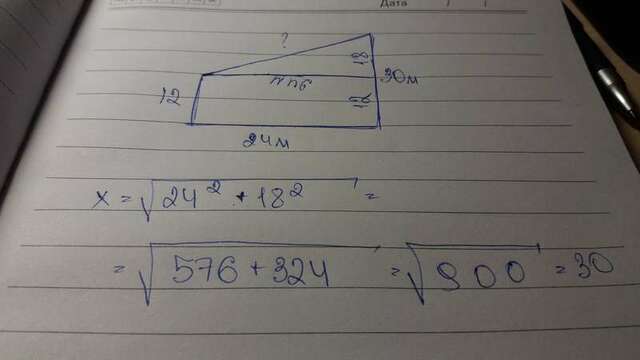 Дата
?
18
24м
30м
12
12
24м
x = √24² + 18² =
= √576 + 324 = √900 = 30